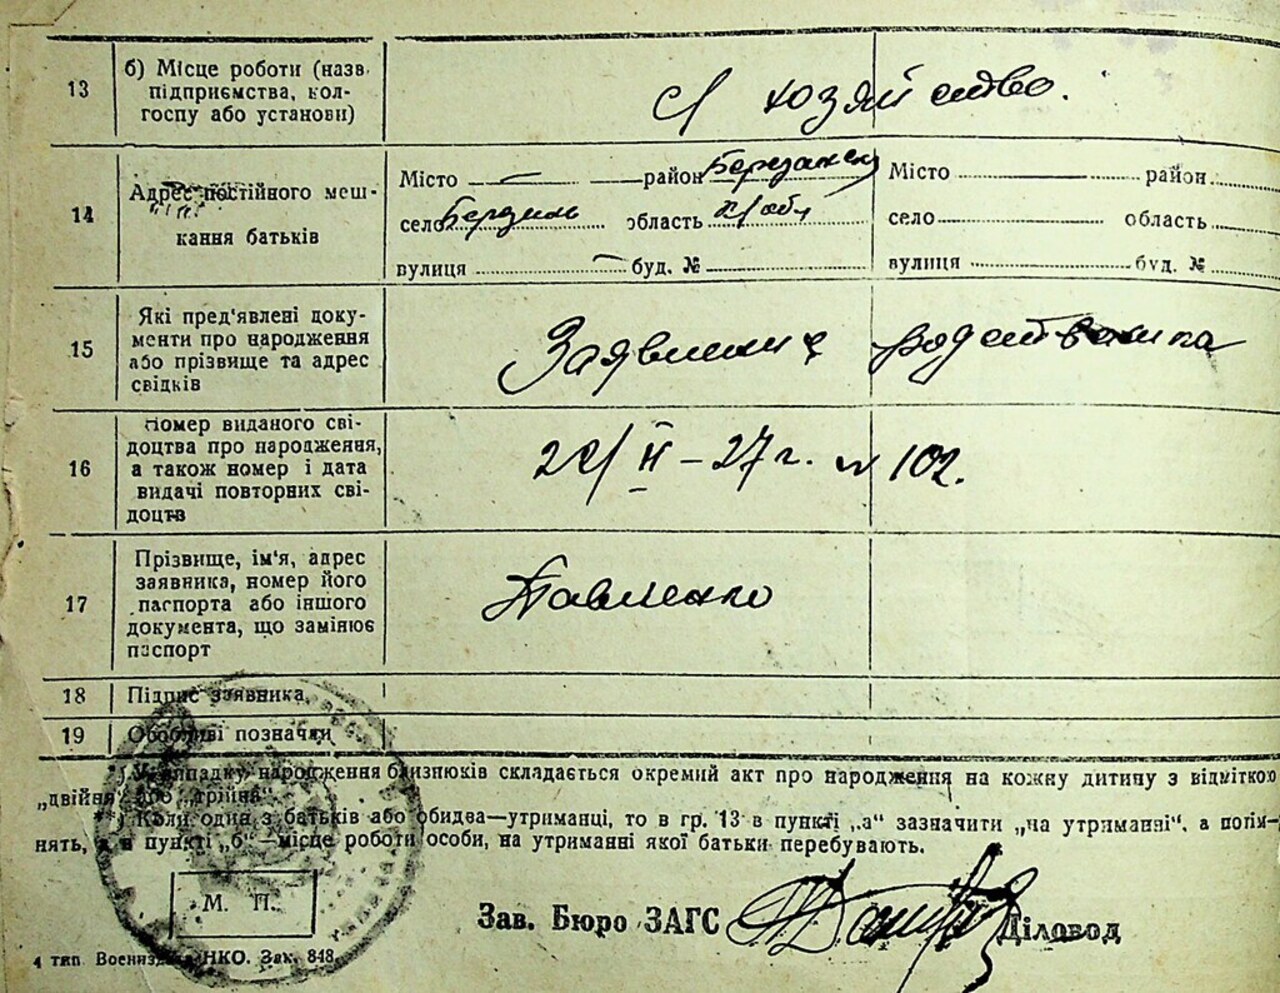 13
б) Місце роботи (назв.
підприємства, кол-
госпу або установи)
С/ хозяйство.
14
Адрес постійного меш-
кання батьків
Місто — район Березанск
село Бердиль область К/обл
вулиця — буд. №
Місто район
село область
вулиця буд. №
15
Які пред'явлені доку-
менти про народження
або прізвище та адрес
свідків
Заявление
16
Номер виданого сві-
доцтва про народження,
а також номер і дата
видачі повторних сві-
доцтв
II – 27 г. № 102.
17
Прізвище, ім'я, адрес
заявника, номер його
паспорта або іншого
документа, що замінює
паспорт
Павленко
18
Підпис заявника
19
Особливі позначки
*) У випадку народження близнюків складається окремий акт про народження на кожну дитину з відміткою
„двійня" або „трійня".
**) Коли один з батьків або обидва—утриманці, то в гр. 13 в пункті „а" зазначити „на утриманні", а поіме-
нять, а в пункті „б"—місце роботи особи, на утриманні якої батьки перебувають.
М. П.
Зав. Бюро ЗАГС
Діловод
4 тип. Воениздата НКО. Зак. 848.